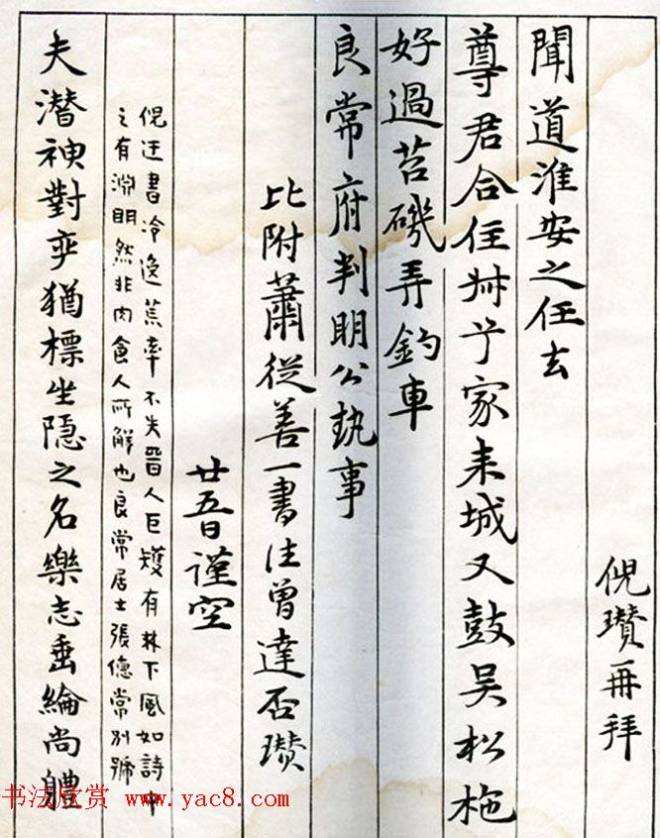 倪瓚再拜
聞道淮安之任去
尊君合住家耒城又鼓吳松柂
好過苔磯弄釣車
良常府判明公執事
比附蕭從善一書注曾達否瓚
廿五日謹空
倪迂書冷逸荒率不失晉人巨矱有林下風如詩中
之有淵明然非肉食人所解也良常居士張德常別號
夫潛神對弈猶標坐隱之名樂志垂綸尚體
书法欣赏 www.yac8.com